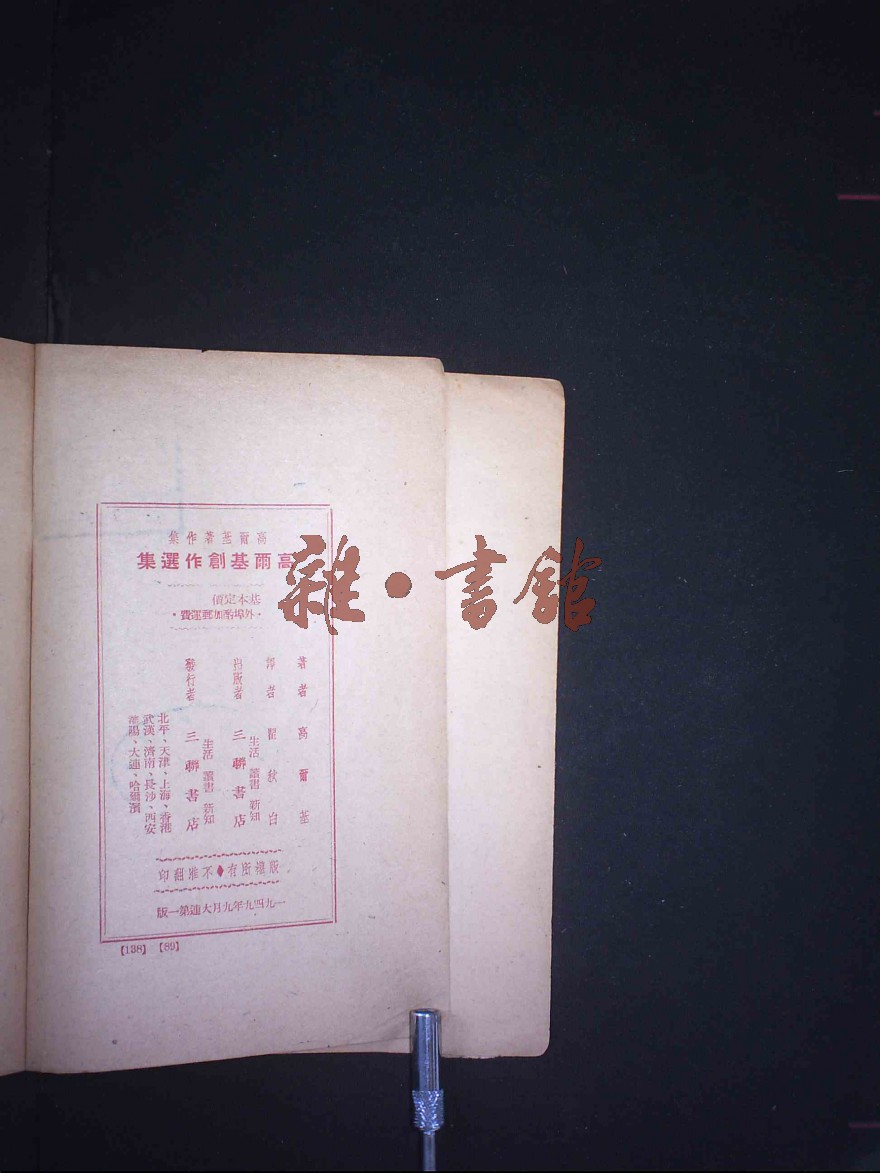 高爾基著作集
高爾基創作選集
基本定價
·外埠酌加郵運費·
著者 高爾基
譯者 瞿秋白
出版者 生活 讀書 新知 三聯書店
發行者 生活 讀書 新知 三聯書店
北平、天津、上海、香港
武漢、濟南、長沙、西安
瀋陽、大連、哈爾濱
版權所有◆不准翻印
一九四九年九月大連第一版
【138】【89】
雜·書館